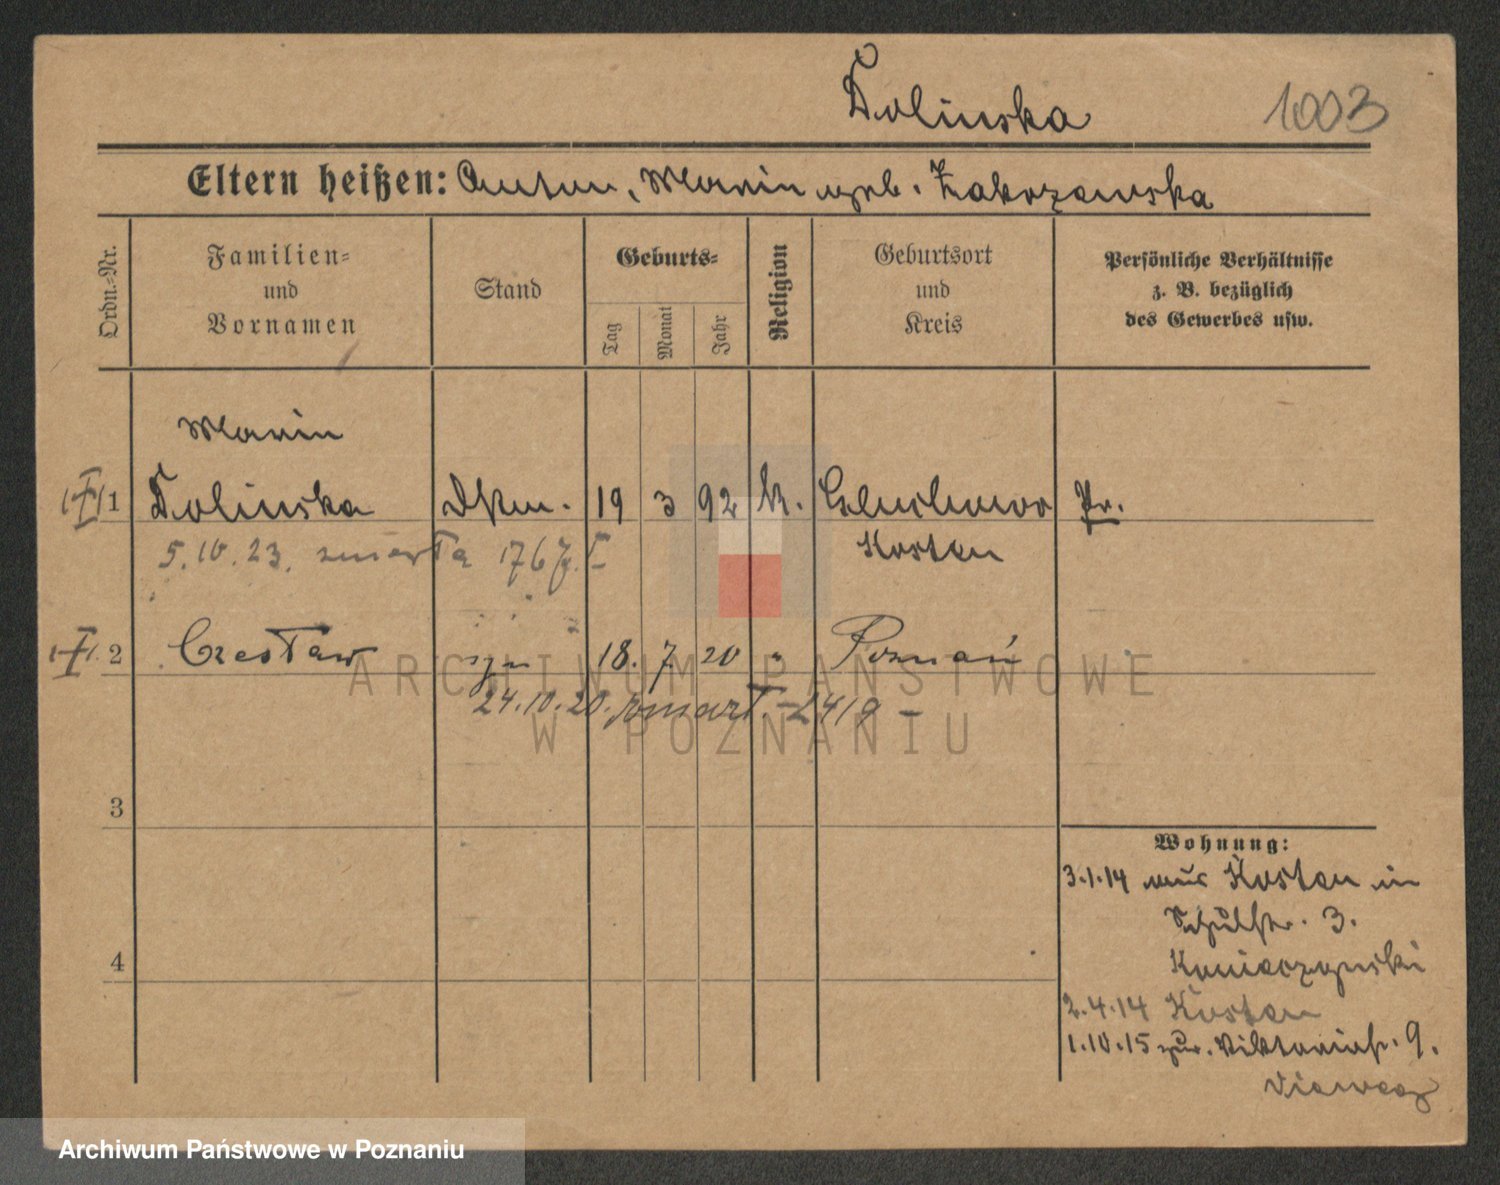 Dolinska
1003
Eltern heißen: Anton, Maria geb. Zakrzewska
Ordn.-Nr.
Familien-
und
Vornamen
Stand
Geburts-
Tag
Monat
Jahr
Religion
Geburtsort
und
Kreis
Persönliche Verhältnisse
z. B. bezüglich
des Gewerbes usw.
Maria
1 Dolinska 19 3 92 k. Pr.
5.10.23. zmarła 1767. I
Kosten
2 Czesław syn 18. 7. 20 " Poznań
24.10.20. zmarł. - 2419 -
3
4
Wohnung:
3.1.14 aus Kosten in
Schulstr. 3.
2.4.14 Kosten
1.10.15 zur. Viktoriastr. 9.
ARCHIWUM PAŃSTWOWE
W POZNANIU
Archiwum Państwowe w Poznaniu